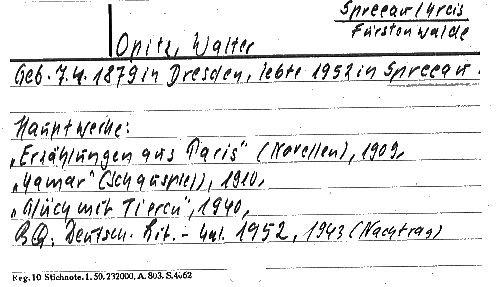 Spreeau / Kreis
Fürstenwalde
Opitz, Walter
Geb. 7.4.1879 in Dresden, lebte 1952 in Spreeau.
Hauptwerke:
„Erzählungen aus Paris" (Novellen), 1909,
„Hamar" (Schauspiel), 1910,
„Glück mit Tieren", 1940,
BQ: Deutsch. Lit.- Kal. 1952, 1943 (Nachtrag)
Krg. 10 Stichnote. 1. 50. 232000. A. 803. S. 4662